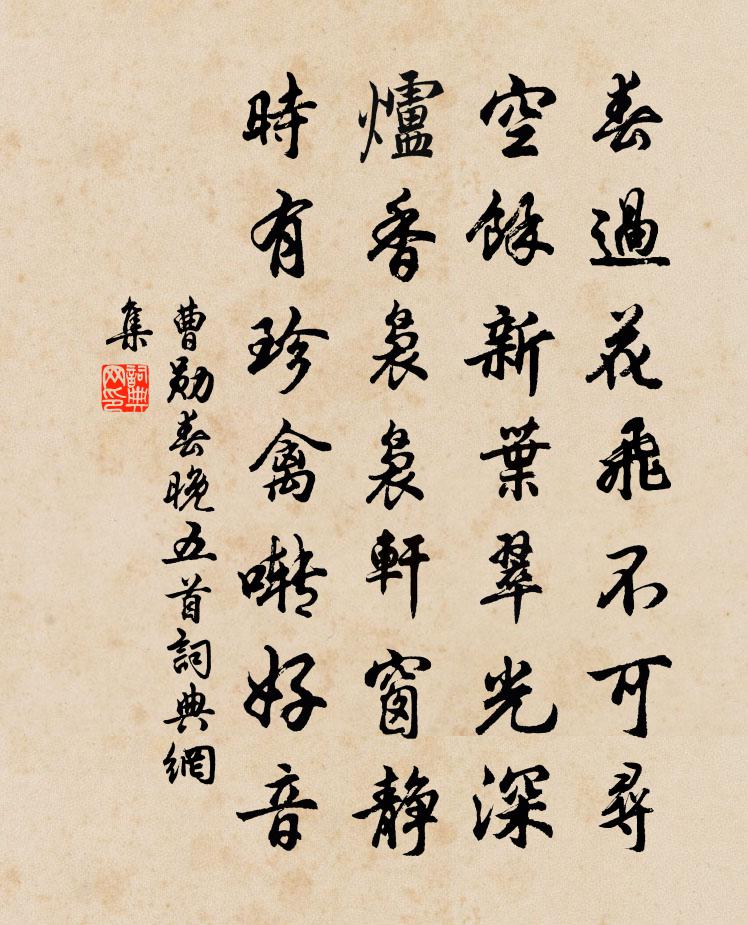 春過花飛不可尋
空餘新葉翠光深
爐香裊裊軒窗靜
時有珍禽囀好音
曹勛春晚五首詞典網
集
詞典
网印